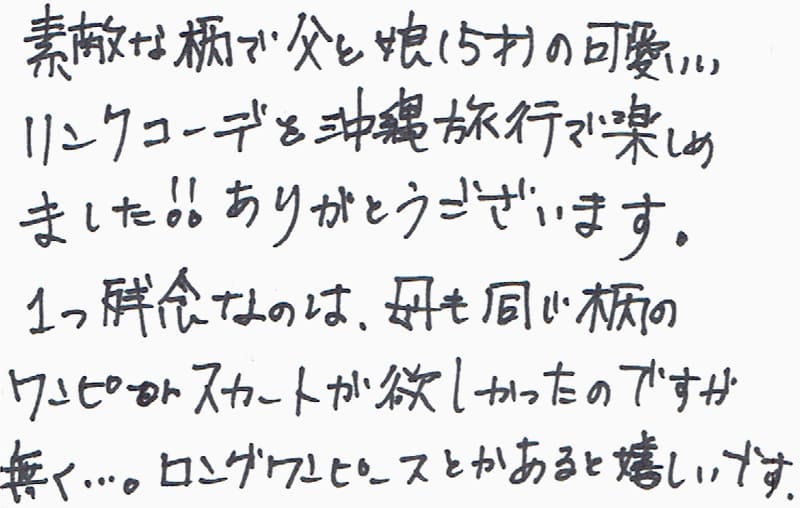 素敵な柄で父と娘(5才)の可愛いい
リンクコーデを沖縄旅行で楽しめ
ました!!ありがとうございます。
1つ残念なのは、母も同じ柄の
ワンピorスカートが欲しかったのですが
無く…。ロングワンピースとかあると嬉しいです。